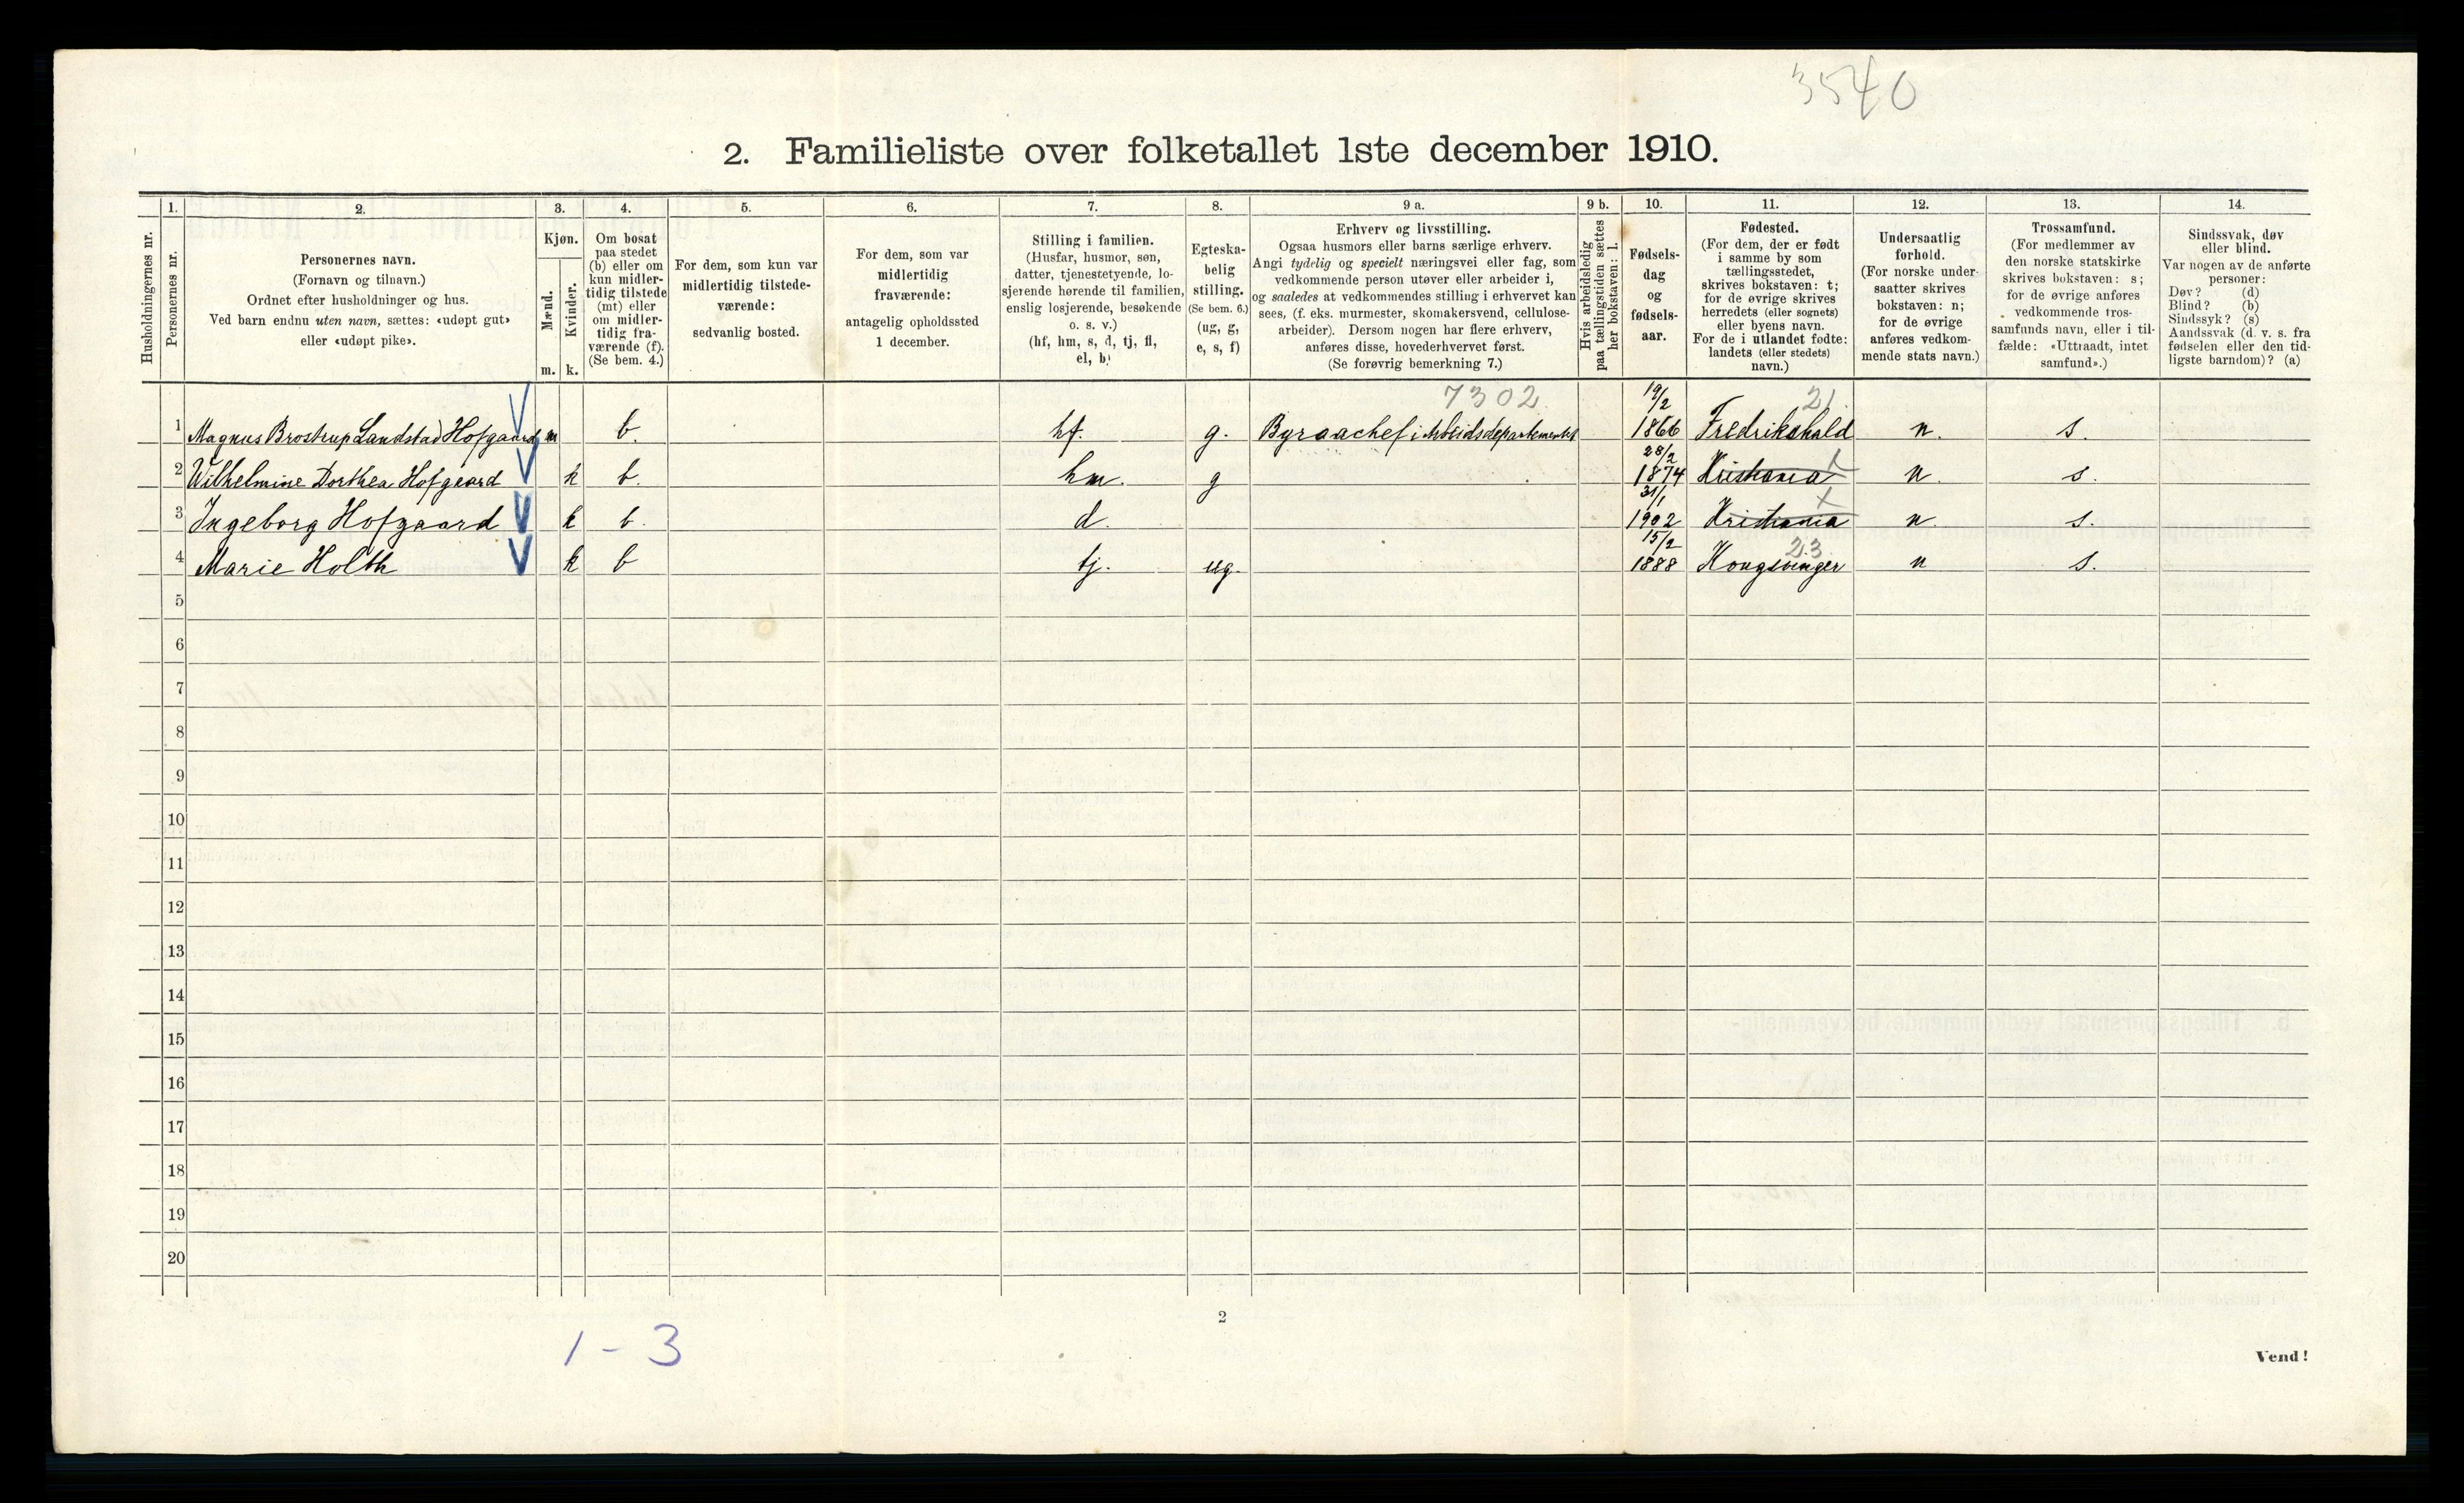 3540
2. Familieliste over folketallet 1ste december 1910.
Husholdningernes nr.
1.
Personernes nr.
2.
Personernes navn.
(Fornavn og tilnavn.)
Ordnet efter husholdninger og hus.
Ved barn endnu uten navn, sættes: «udøpt gut»
eller «udøpt pike».
3.
Kjøn.
Mænd.
Kvinder.
m.
k.
4.
Om bosat
paa stedet
(b) eller om
kun midler-
tidig tilstede
(mt) eller
om midler-
tidig fra-
værende (f).
(Se bem. 4.)
5.
For dem, som kun var
midlertidig tilstede-
værende:
sedvanlig bosted.
6.
For dem, som var
midlertidig
fraværende:
antagelig opholdssted
1 december.
7.
Stilling i familien.
(Husfar, husmor, søn,
datter, tjenestetyende, lo-
sjerende hørende til familien,
enslig losjerende, besøkende
o. s. v.)
(hf, hm, s, d, tj, fl,
el, b)
8.
Egteska-
belig
stilling.
(Se bem. 6.)
(ug, g,
e, s, f)
9 a.
Erhverv og livsstilling.
Ogsaa husmors eller barns særlige erhverv.
Angi tydelig og specielt næringsvei eller fag, som
vedkommende person utøver eller arbeider i,
og saaledes at vedkommendes stilling i erhvervet kan
sees, (f. eks. murmester, skomakersvend, cellulose-
arbeider). Dersom nogen har flere erhverv,
anføres disse, hovederhvervet først.
(Se forøvrig bemerkning 7.)
9 b.
Hvis arbeidsledig
paa tællingstiden sættes
her bokstaven: l.
10.
Fødsels-
dag
og
fødsels-
aar.
11.
Fødested.
(For dem, der er født
i samme by som
tællingsstedet,
skrives bokstaven: t;
for de øvrige skrives
herredets (eller sognets)
eller byens navn.
For de i utlandet fødte:
landets (eller stedets)
navn.)
12.
Undersaatlig
forhold.
(For norske under-
saatter skrives
bokstaven: n;
for de øvrige
anføres vedkom-
mende stats navn.)
13.
Trossamfund.
(For medlemmer av
den norske statskirke
skrives bokstaven: s;
for de øvrige anføres
vedkommende tros-
samfunds navn, eller i til-
fælde: «Uttraadt, intet
samfund».)
14.
Sindssvak, døv
eller blind.
Var nogen av de anførte
personer:
Døv? (d)
Blind? (b)
Sindssyk? (s)
Aandssvak (d. v. s. fra
fødselen eller den tid-
ligste barndom)? (a)
7302 19/2 21
1 Magnus Brostrup Landstad Hofgaard m b. hf. g. Byraachef i Arbeidsdepartementet 1866 Fredrikshald n. s.
28/2 t
2 Wilhelmine Dorthea Hofgaard k b. hm. g 1874 Kristiania n. s.
31/1
3 Ingeborg Hofgaard k b. d. 1902 Kristiania n. s.
15/2 23
4 Marie Holth k b tj. ug. 1888 Kongsvinger n s.
5
6
7
8
9
10
11
12
13
14
15
16
17
18
19
20
2
1 - 3
Vend!